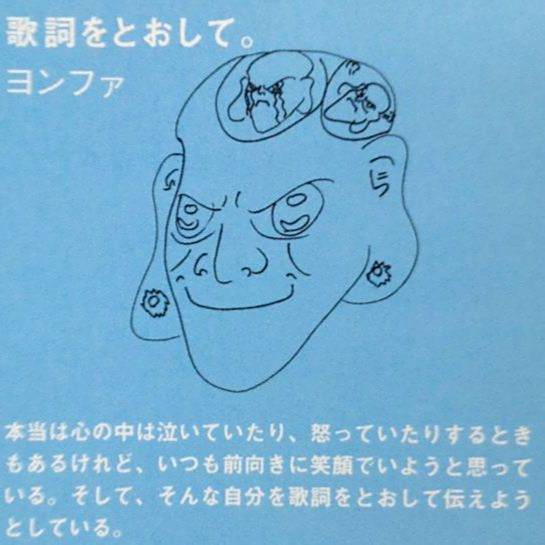 歌詞をとおして。
ヨンファ
本当は心の中は泣いていたり、怒っていたりするとき
もあるけれど、いつも前向きに笑顔でいようと思って
いる。そして、そんな自分を歌詞をとおして伝えよう
としている。